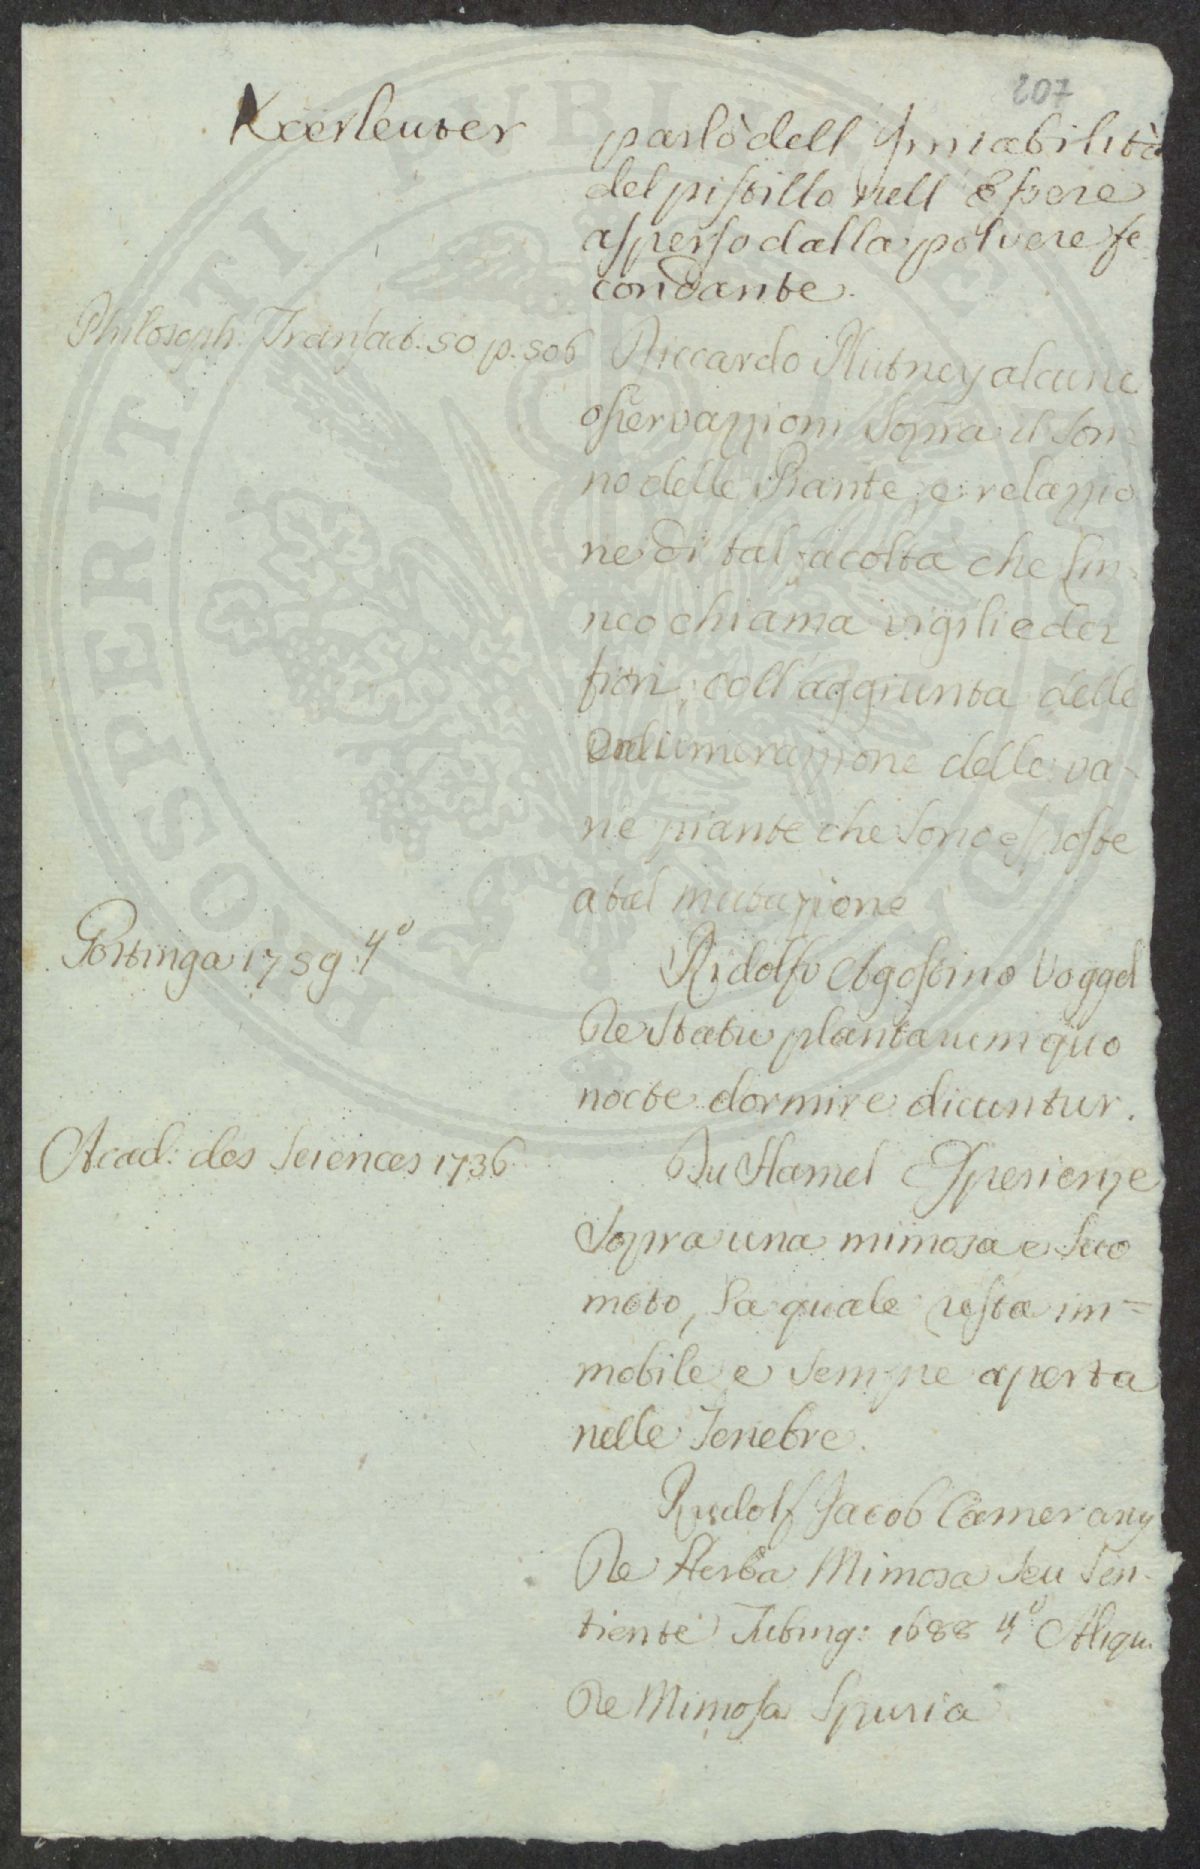 207
Koerleuter parlò dell' Irritabilità
del pistillo nell' Essere
asperso dalla polvere fe
condante.
Philosoph. Transact. 50 p. 506 Riccardo Plutney alcune
osservazzioni Sopra il Son-
no delle Piante, e relazzio
ne di tal facoltà che Lin-
neo chiama vigilie dei
fiori, coll'aggiunta delle
Enumerazzione delle va-
rie piante che Sono esposte
a tal mutazzione
Gottinga 1759. 4º Ridolfo Agostino Voggel
De Statu plantarum quo
nocte dormire dicuntur.
Acad: des Sciences 1736. Du Hamel Esperienze
Sopra una mimosa e Suo
moto, la quale resta im=
mobile e Sempre aperta
nelle Tenebre.
Rudolf Jacob Camerarij
De Herba Mimosa Seu Sen-
tiente Tubing: 1688 4º Aliqu.
De Mimosa Spuria
PROSPERITATI PVBLICAE